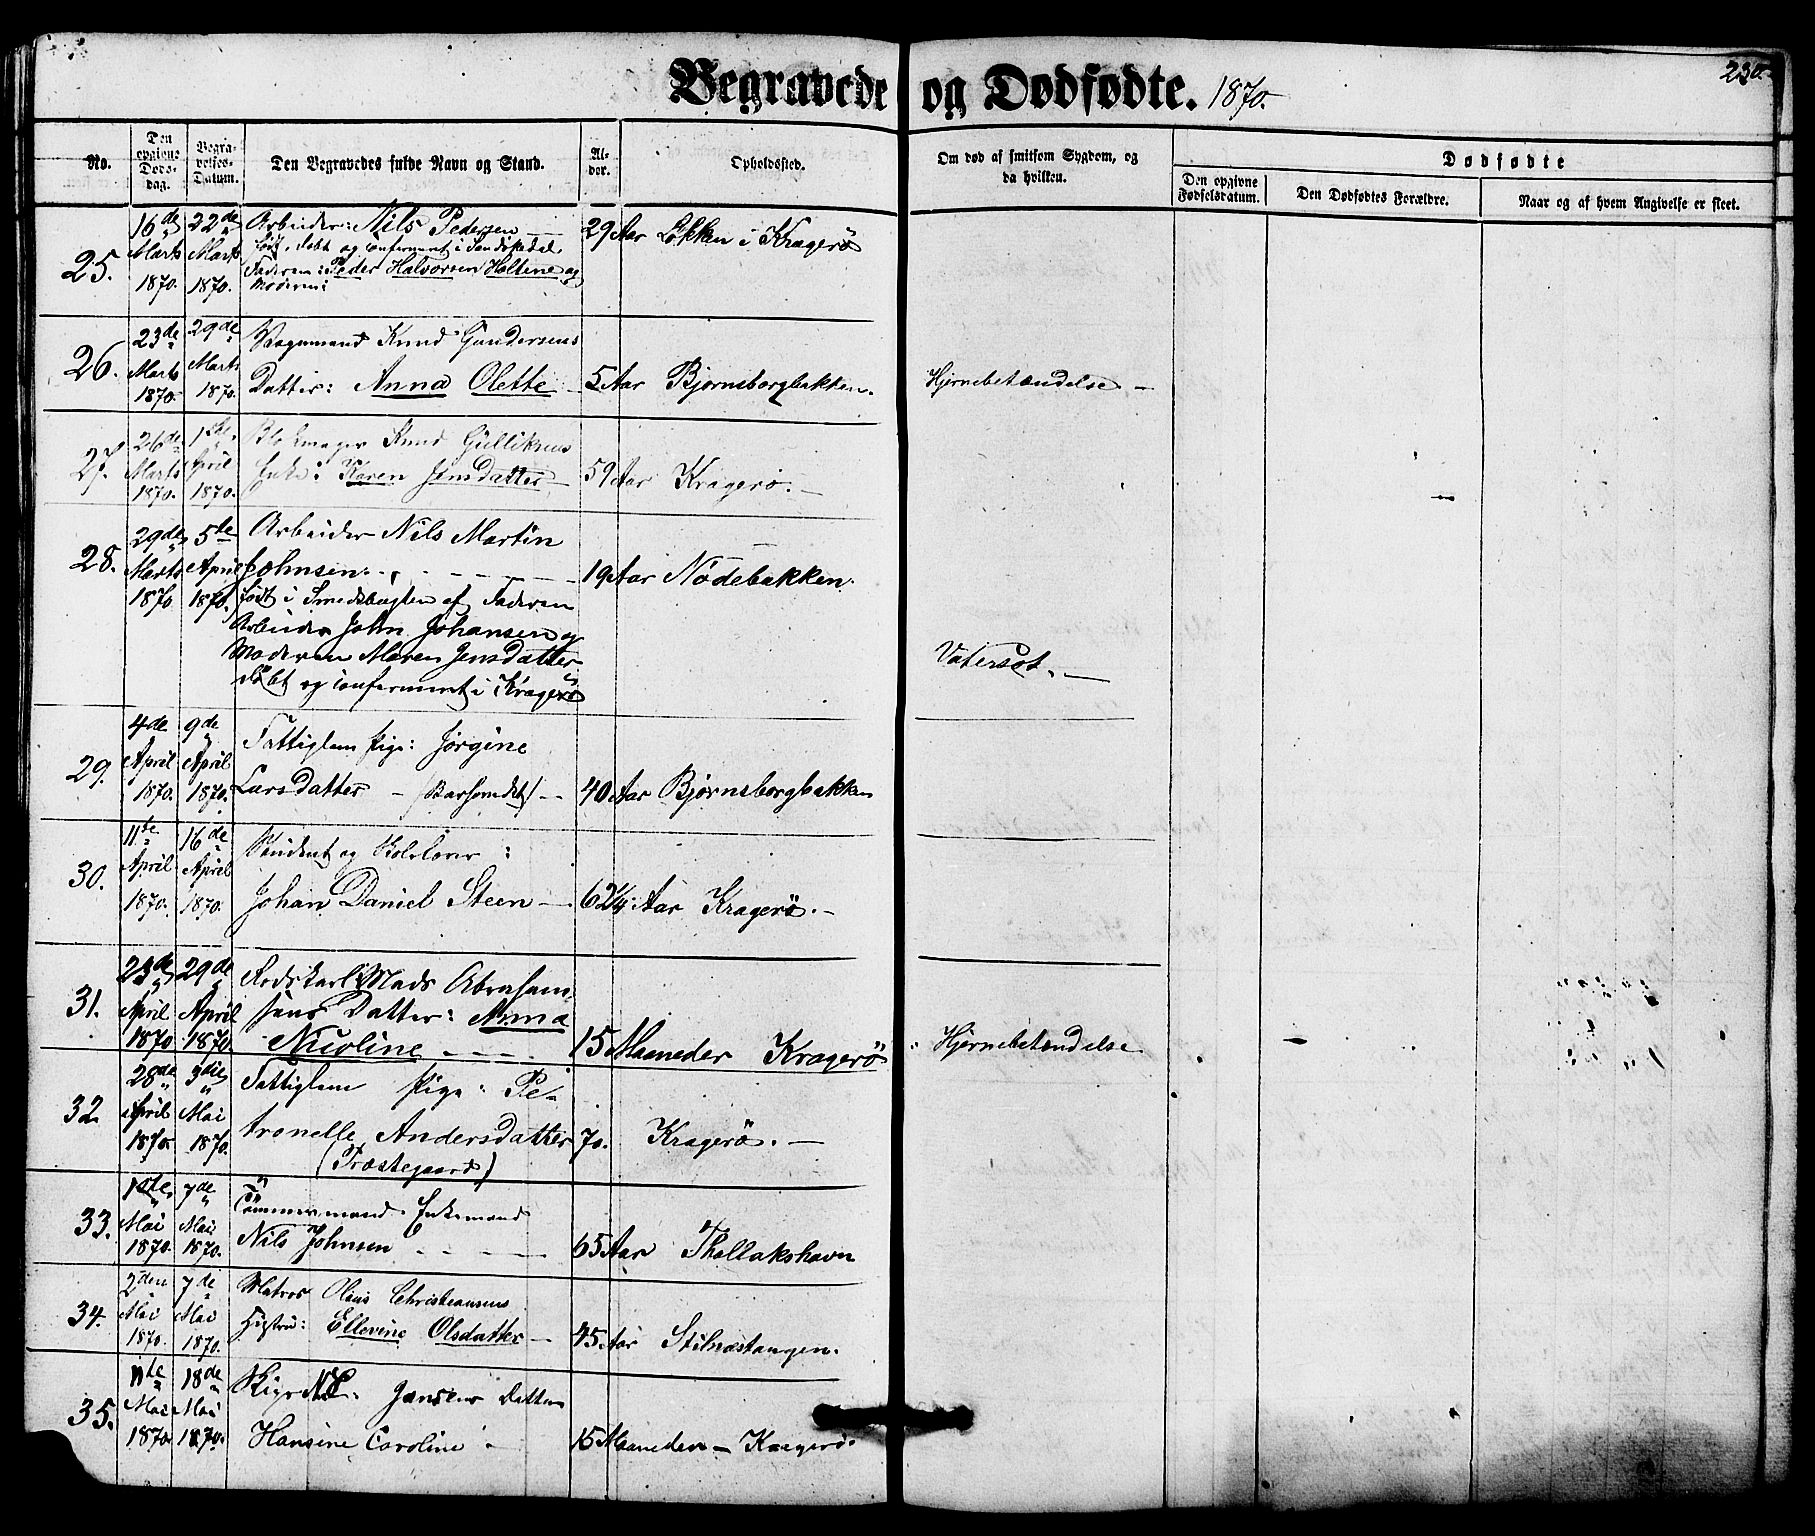 230.
Begravede og Dødfødte. 1870.
No.
Den opgivne Døds-dag.
Begra-velses-Datum.
Den Begravedes fulde Navn og Stand.
Al-der.
Opholdssted.
Om død af smitsom Sygdom, og da hvilken.
Dødfødte
Den opgivne Fødselsdatum.
Den Dødfødtes Forældre.
Naar og af hvem Angivelse er skeet.
25. 16de Marts 1870. 22de Marts 1870.
Arbeider: Nils Pedersen
født, døbt og confirmeret i Sandøkedal,
Faderen: Peder Halvorsen Holtene og
Moderen:
29 Aar Løkken i Kragerö
26. 23de Marts 1870. 29de Marts 1870.
Vognmand Knud Gundersens
Datter: Anna Olette
5 Aar Bjørnsborgbakken.
Hjernebetændelse
27. 26de Marts 1870. 1ste April 1870.
Blokmager Knud Gulliksens
Enke: Karen Jensdatter
59 Aar Kragerö.
28. 29de Marts 1870 5te April 1870.
Arbeider Nils Martin
Johnsen.
født i Smedsbugten af Faderen
Arbeider John Johansen og
Moderen Maren Jensdatter
døbt og confirmeret i Kragerö
19 Aar Nodebakken.
Vatersot.
29. 4de April 1870. 9de April 1870.
Fattiglem Pige: Jørgine
Larsdatter
40 Aar Bjørnsborgbakken
30. 11te April 1870. 16de April 1870.
Student og
Johan Daniel Steen
62 1/4 Aar Kragerö.
31. 23de April 1870 29de April 1870.
Mads Abraham-
sens Datter: Anna
Nicoline
15 Maaneder Kragerö
Hjernebetændelse
32 28de April 1870. 3die Mai 1870.
Fattiglem Pige: Pe-
tronelle Andersdatter
(Præstegaard)
70. Kragerö.
33. Mai 1870. 7de Mai 1870.
Tömmermand Enkemand
Nils Johnsen
65 Aar Thollakshavn
34. 2den Mai 1870. 7de Mai 1870.
Matros Olaus Christiansens
Hustru: Ellevine Olsdatter
45 Aar Stilnæstangen.
35. 11te Mai 1870. 18de Mai 1870.
Jansens Datter
Hansine Caroline
15 Maaneder Kragerö.